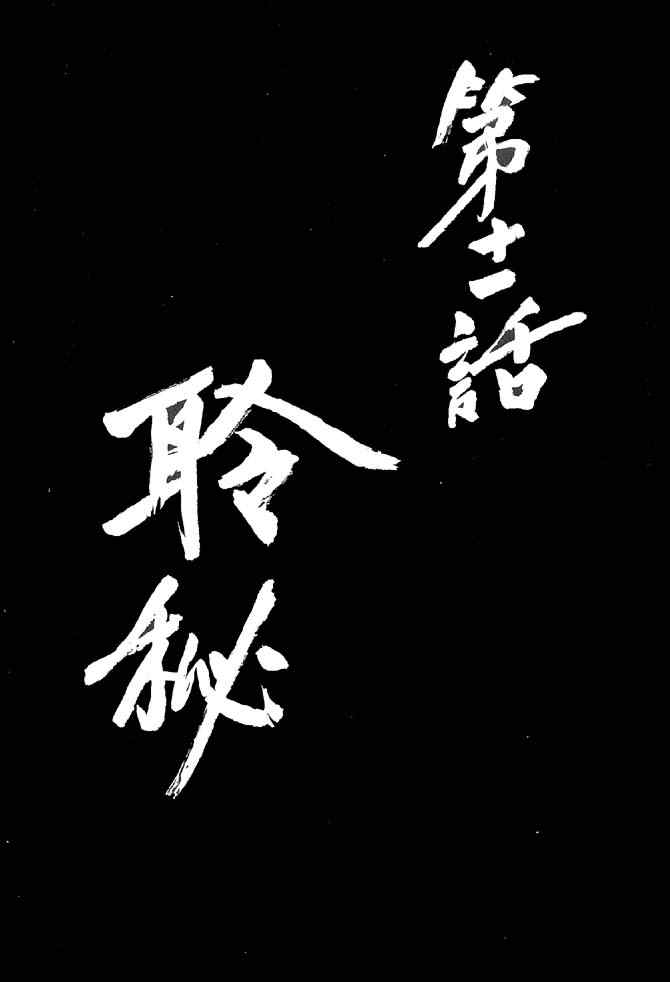 第十一話
聆秘